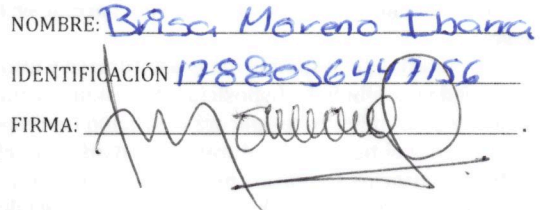 NOMBRE: Brisa Moreno Ibarra
IDENTIFICACIÓN 1788056447156
FIRMA: .